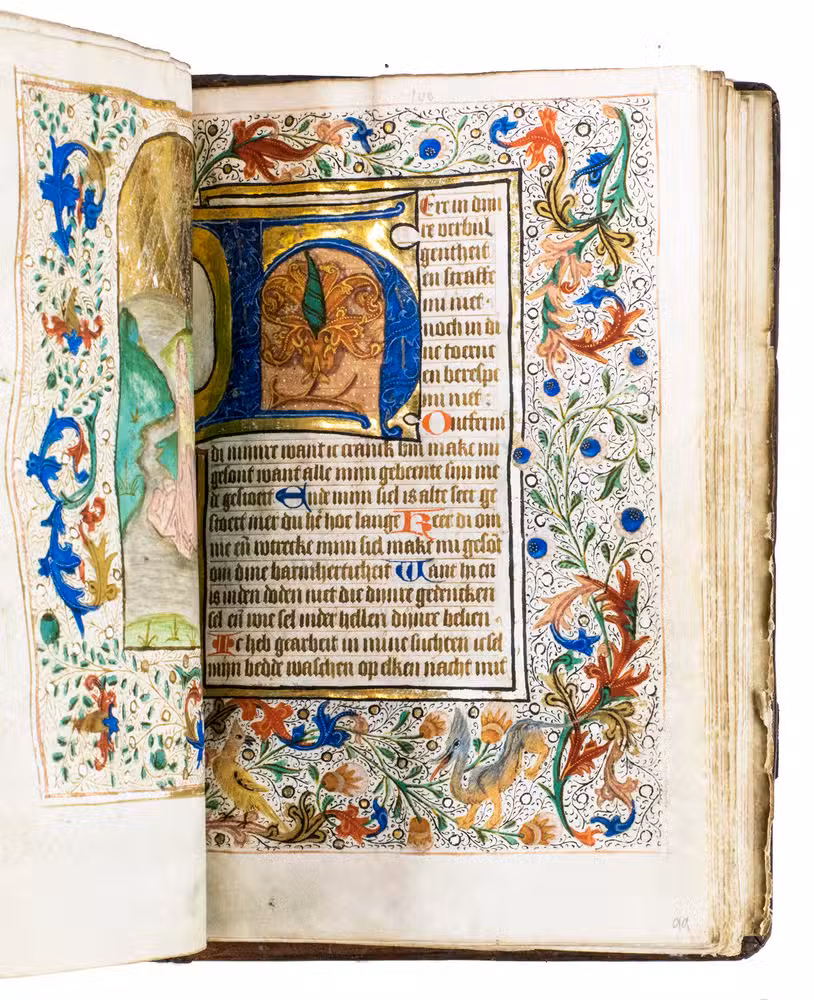 HEre in din
re verbul
gentheit
en straffe
mi niet·
noch in di
nē toerne
en berespe
mi niet :
Ontferm
di minre want ic cranck bin make mi
gesont want alle mijn gebeente sijn me
de gestoert Ende mijn siel is alte seer ge
stoert mer du hē hoe lange Heer di om
me eñ wtrecke mijn siel make mi gesōt
om dine barmherticheit Want hi en
is inden doden niet die dijnre gedencken
sel eñ wie sel inder hellen dijnre belien·
Ic heb gearbeit in mine suchten ic sel
mijn bedde waschen op elken nacht mit